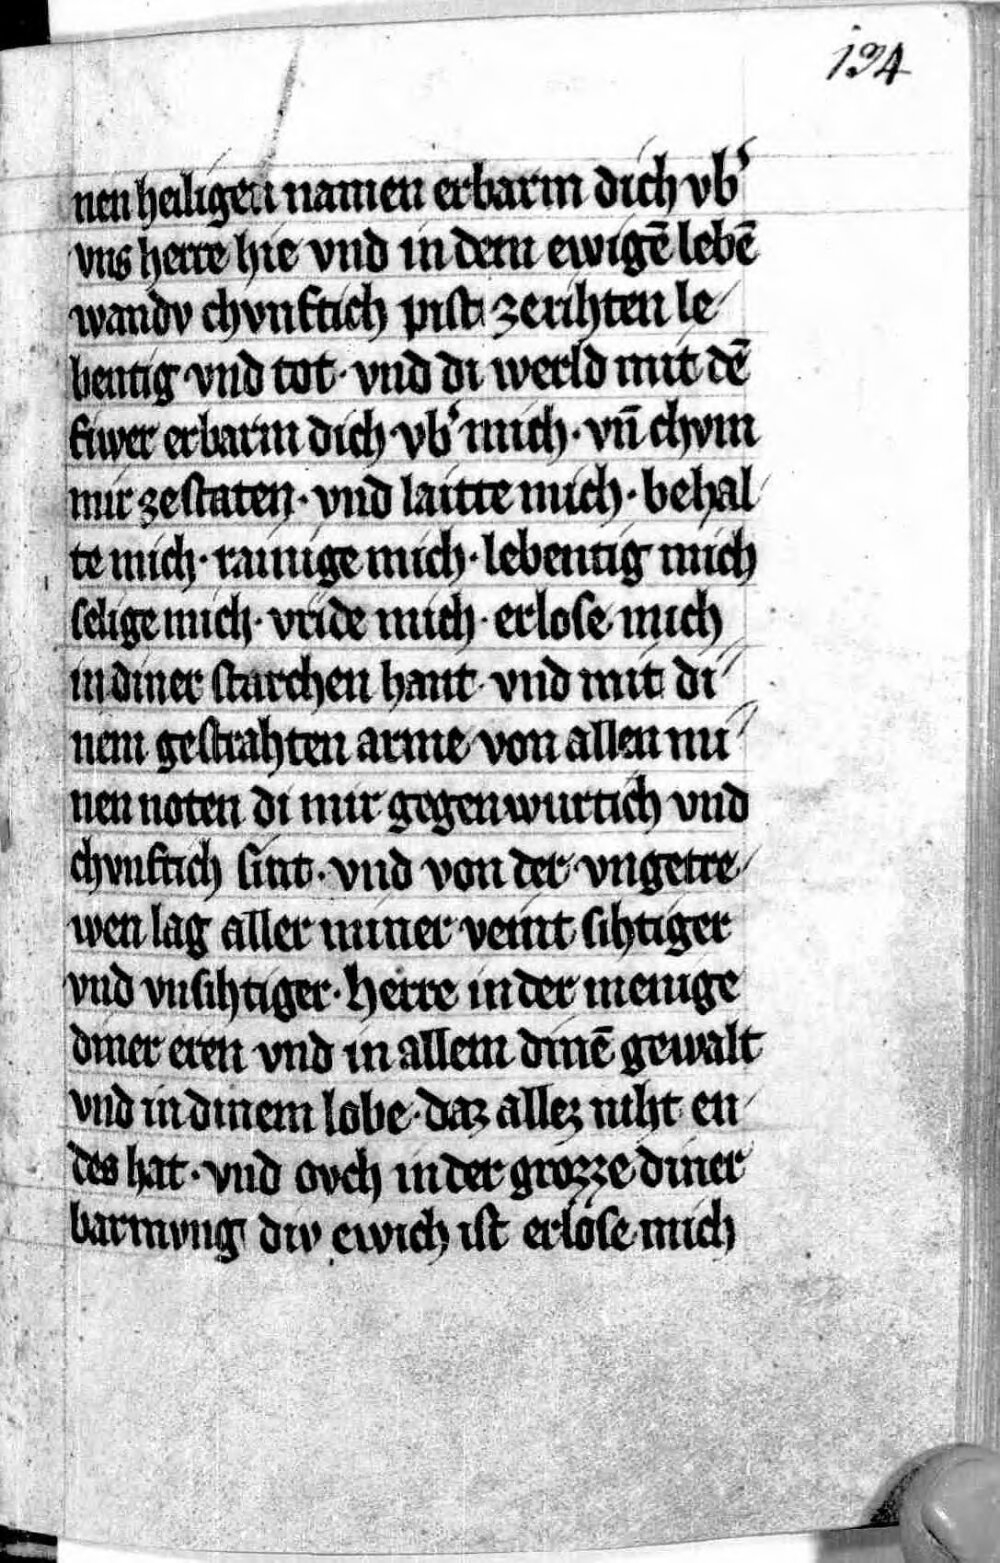 134
nen heiligen namen erbarm dich vb᾽
vns herre hie vnd in dem ewigē lebē
wandv chvnftich pist zerihten le/
bentig vnd tot· vnd di werld mit dē
fiwer erbarm dich vb᾽ mich· vn̄ chvm
mir ze staten· vnd laitte mich· behal/
te mich· rainige mich· lebentig mich
selige mich· vride mich· erlose mich
in diner starchen hant· vnd mit di/
nem gestrahten arme von allen mi/
nen noten di mir gegenwurtich vnd
chvnftich sint· vnd von der vngetre/
wen lag aller miner veint sihtiger
vnd vnsihtiger· herre in der menige
diner eren vnd in allem dinē gewalt
vnd in dinem lobe· daz allez niht en/
des hat· vnd ovch in der grozze diner
barmvng div ewich ist erlose mich